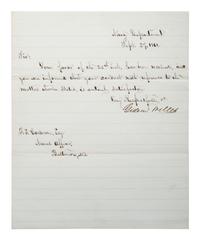 Navy Department
Sept. 27, 1861
Sir:
Your favor of the 25th inst. has been received, and
you are informed that your conduct with reference to the
matter therein stated, is entirely satisfactory.
Very Respectfully,
Gideon Welles
Esq.
Naval Officer
Baltimore, Md.